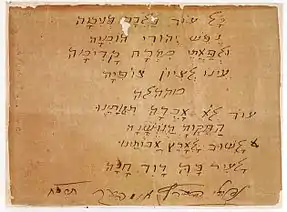 כל עוד בלבב פנימה
נפש יהודי הומיה
ולפאתי מזרח קדימה
עינו לציון צופיה
מקהלה
עוד לא אבדה תקותנו
התקוה הנושנה
לשוב לארץ אבותינו
לעיר בה דוד חנה
נפתלי הערץ אימבער